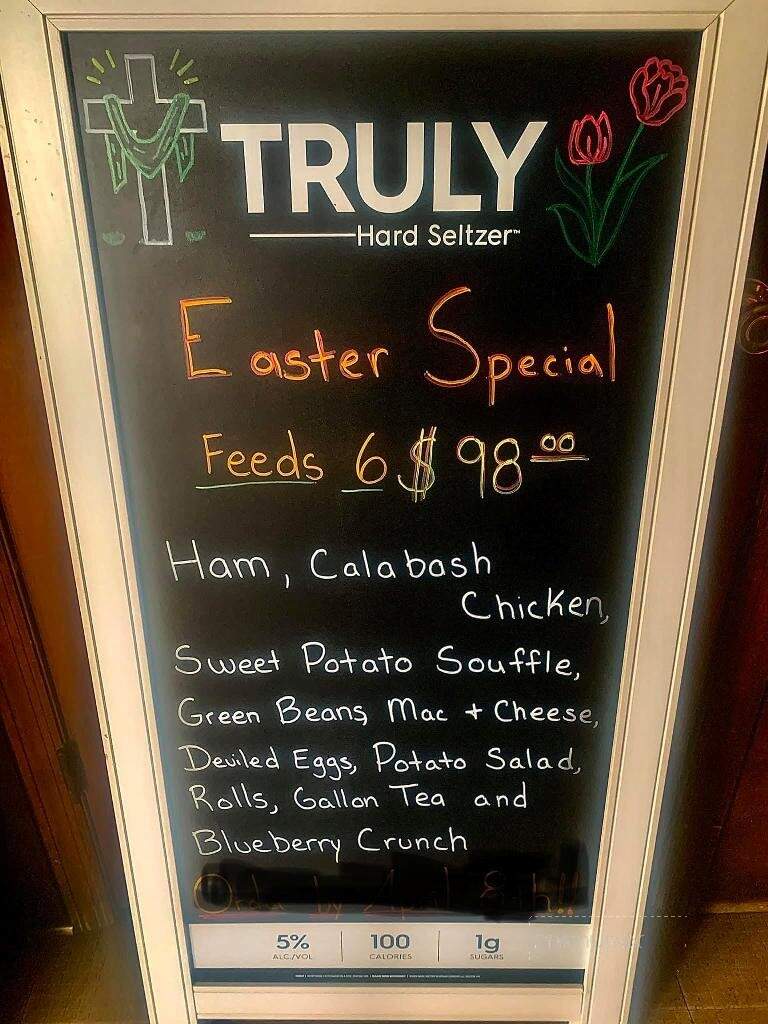 TRULY
Hard Seltzer™
Easter Special
Feeds 6 $98.00
Ham, Calabash
Chicken,
Sweet Potato Souffle,
Green Beans, Mac + Cheese,
Deviled Eggs, Potato Salad,
Rolls, Gallon Tea and
Blueberry Crunch
Order by April
5% 100 1g
ALC./VOL CALORIES SUGARS